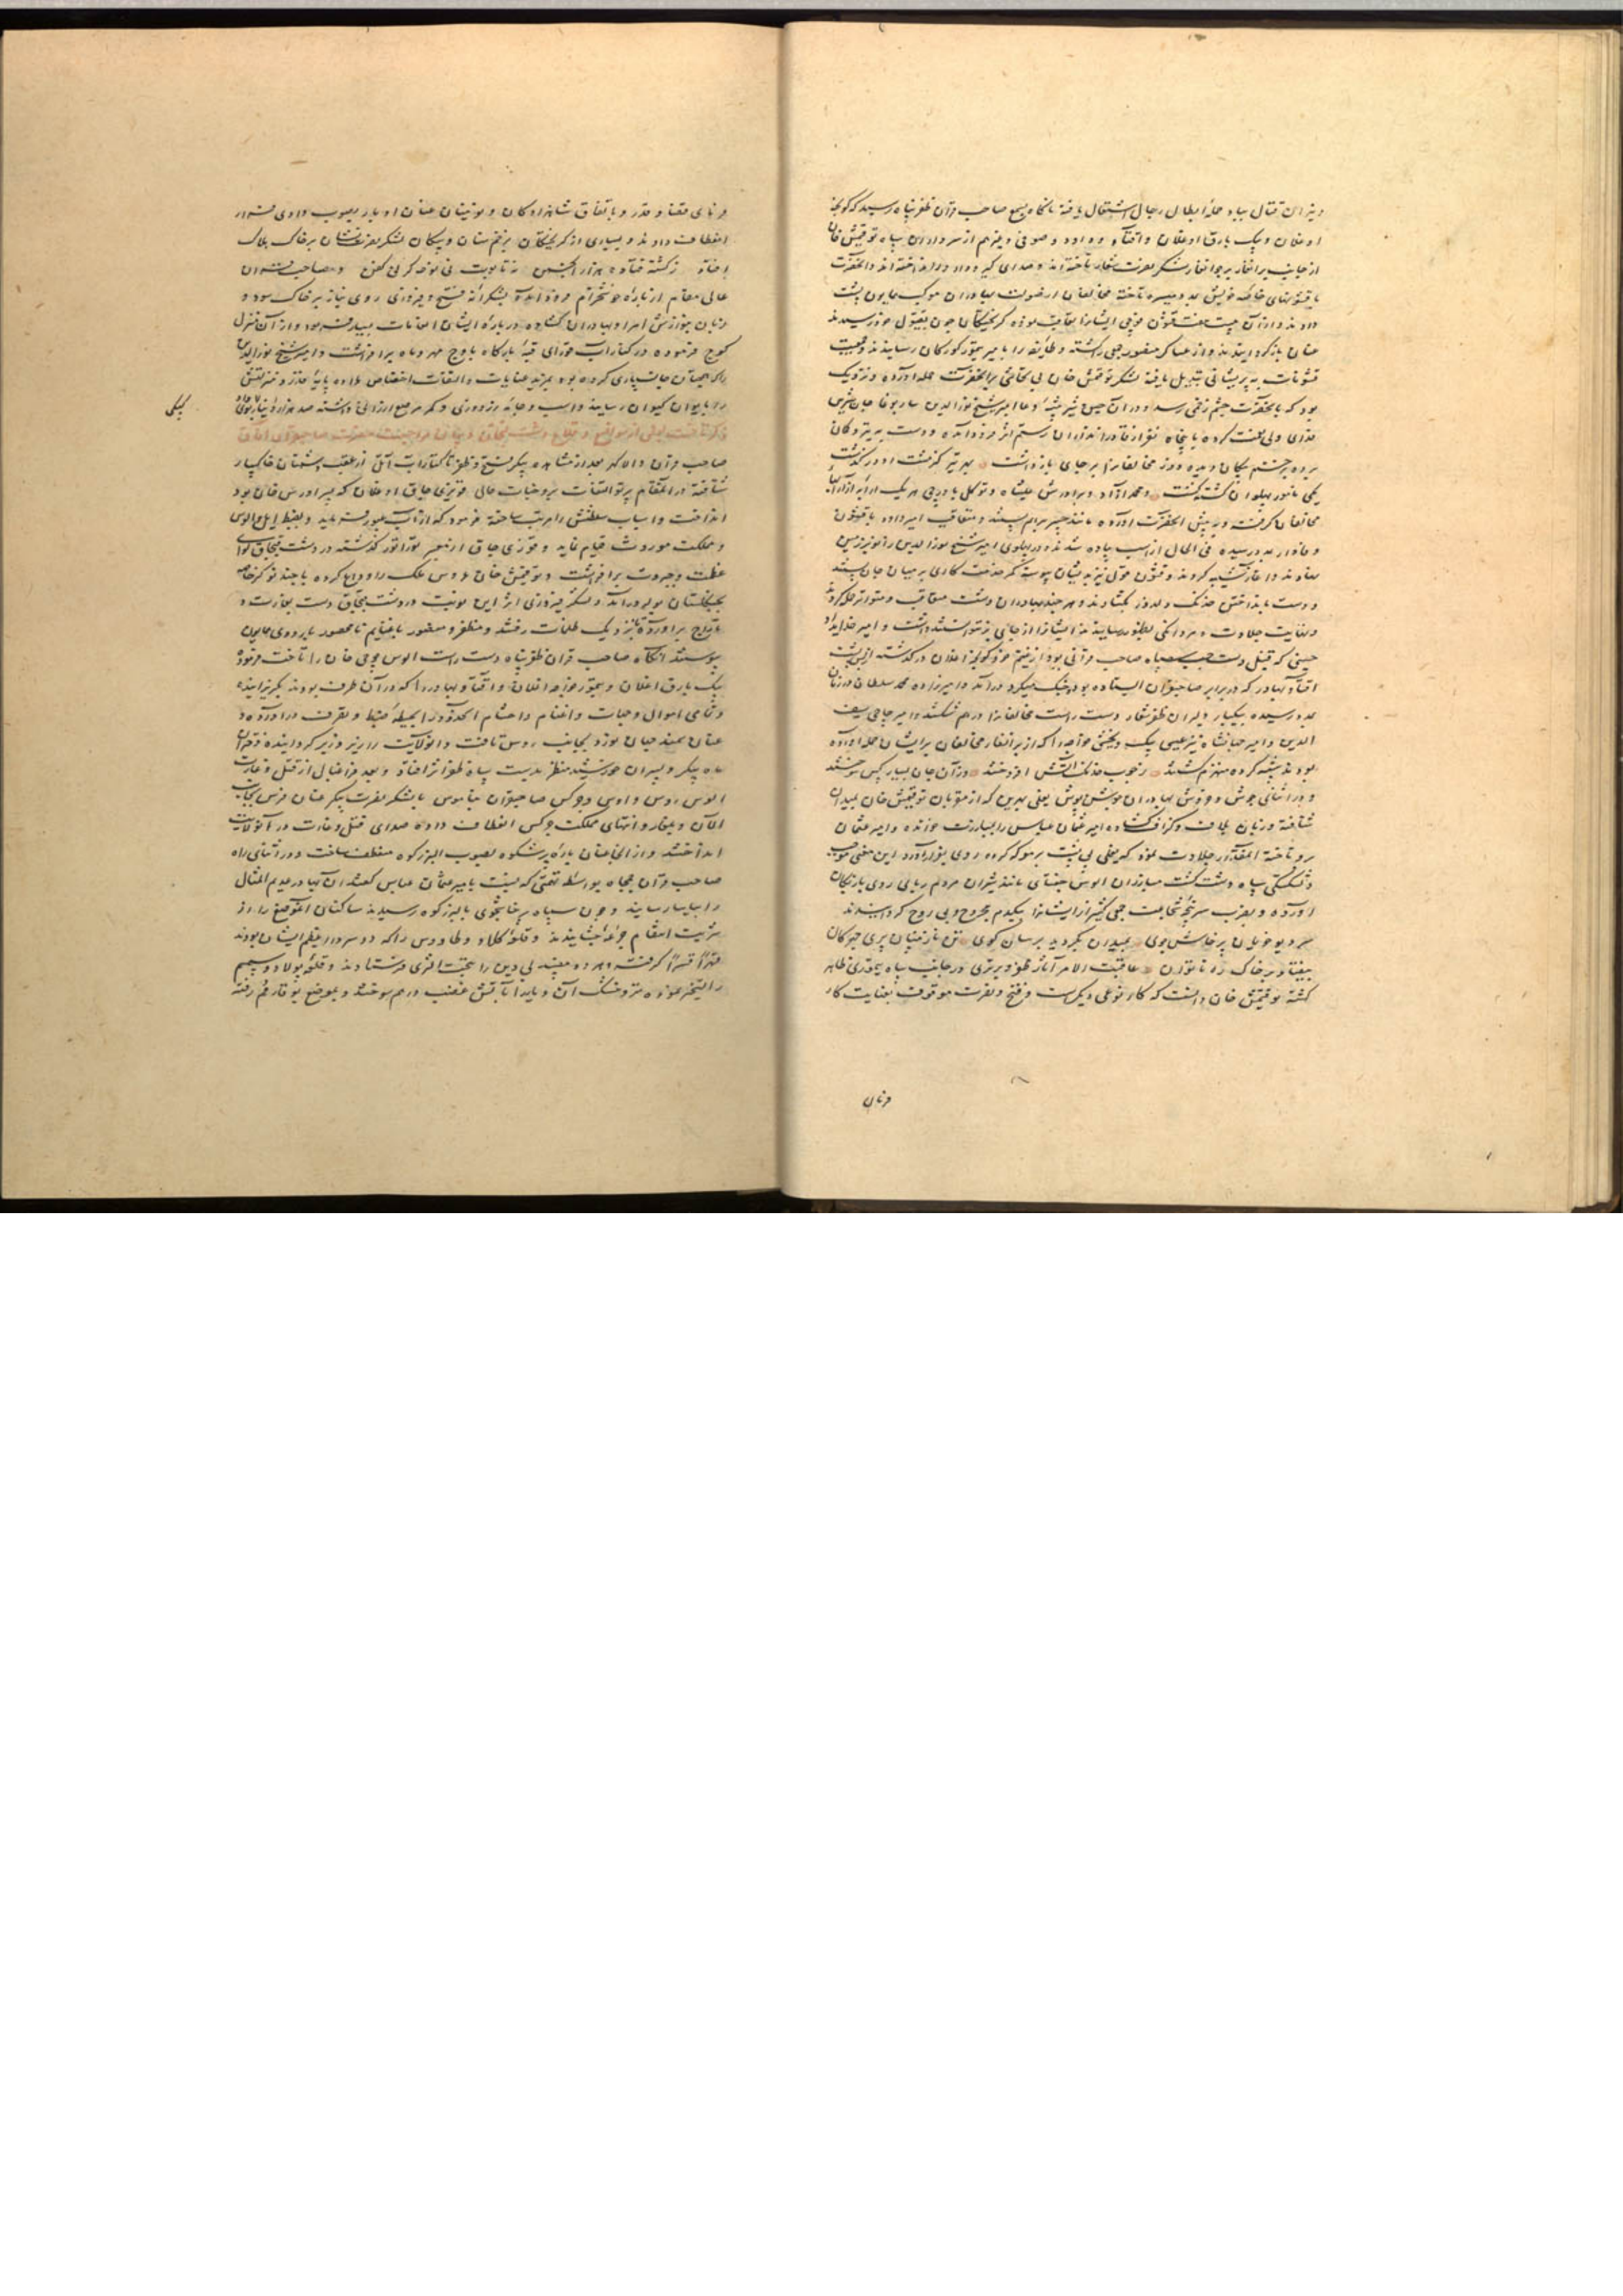 و نیران قتال بباد حملهٔ ابطال رجال اشتعال یافته ناگاه بسمع صاحب قران ظفرپناه رسید که کونجه
اوغلان و بیک یارق اوغلان و اقتاو و داود و صوفی و غیرهم از سرداران سپاه توقتمش خان
از جانب برانغار بر جوانغار لشکر نصرت شعار تاخته‌اند و صدای گیر و دار در انداخته‌اند و آنحضرت
با قشونهای خاصهٔ خویش بمدد میسره تاخته مخالفان از صولت بهادران موکب همایون پشت
دادند و از آن بیست هفت قشون فوجی ایشانرا تعاقب نموده گریختگان چون بقبول خود رسیدند
عنان باز گردانیدند و از عساکر منصور جمعی را کشته و طایفه را بامیر تیمور کورکان رسانیدند و جمعیت
قشونات به پریشانی تبدیل یافته لشکر توقتمش خان بی تحاشی بر آنحضرت حمله آورده و نزدیک
بود که بآنحضرت چشم زخمی رسد و در آن حین امیر شیخ نورالدین ساربوغا جان شیرین
فدای ولی نعمت کرده با پنجاه نفر از قادراندازان رستم اثر فرود آمده و دست به تیر و کمان
برده بزخم پیکان دیده دوز مخالفانرا بر جای بازداشت بهر تیر کز شست او درگذشت
یکی نامور پهلوان کشته گشت و محمد آزاد و برادرش علیشاه و توکل باورچی هر یک ارابه از ارابهای
مخالفان گرفته و پیش آنحضرت آورده مانند چپر بر هم بستند و متعاقب امیرداد با قشون
وفادار بمدد رسیده فی الحال از اسب پیاده شدند و در پهلوی امیر شیخ نورالدین زانو بر زمین
نهادند و آغاز شیبه کردند و قشون قول نیز بدیشان پیوسته کمر خدمت کاری بر میان جان بستند
و دست بانداختن خدنک دلدوز بگشادند و هر چند بهادران دشت متعاقب و متواتر حمله کردند
و نهایت جلادت و مردانگی بظهور رسانیدند ایشانرا از جای نتوانستند داشت و امیر خدایداد
حسینی که قنبل دست چپ سپاه صاحب قرانی بود از غنیم خود کونجه اغلان درگذشته از پس پشت
اقتاو بهادر که در برابر صاحبقران ایستاده بود و جنگ میکرد درآمد و امیرزاده محمد سلطان در زمان
بمدد رسیده بیکبار دلیران ظفر شعار دست راست مخالفانرا در هم شکستند و امیر حاجی سیف
الدین و امیر جهانشاه نیز عیسی بیک و بخشی خواجه را که از برانغار مخالفان بر ایشان حمله آورده
بودند شیبه کرده منهزم گشتند ز خوب خدنک آتش افروختند وز آن جان بسیار کس سوختند
و در اثنای جوش و خروش بهادران جوشن پوش یغلی بهرین که از مقربان توقتمش خان بمیدان
شتافته و زبان بلاف و گزاف گشاده امیر عثمان عباس را بمبارزت خوانده و امیر عثمان
برو تاخته آنمقدار جلادت نمود که یغلی بی نسبت بر معرکه کرده روی بفرار آورد این معنی موجب
دلشکستگی سپاه دشت گشت مبارزان الوس جغتای مانند شیران مردم ربای روی بازیکان
آورده و بضرب سرپنجهٔ شجاعت جمعی کثیر از ایشانرا بیکدم مجروح و بی روح گردانیدند
سر دیو خویان پرخاش جوی بمیدان بگردید برسان گوی تن نازنینان پری چهرگان
بیفتاد بر خاک ره ناتوان عاقبت الامر آثار ظفر و برتری در جانب سپاه تیموری ظاهر
گشته توقتمش خان دانست که کار نوعی دیگرست و فتح و نصرت موقوف بعنایت کار
فرمان
فرمای قضا و قدر و باتفاق شاهزادگان و نوینان عنان ادبار بصوب وادی فرار
انعطاف دادند و بسیاری از گریختگان بزخم سنان و پیکان لشکر نصرت نشان بر خاک هلاک
افتاد ز کشته فتاده هزار انجمن نه تابوت نی نوحه گر نی کفن و صاحب قران
عالی مقام از بارهٔ خوشخرام فرود آمد بشکرانهٔ فتح و فیروزی روی نیاز بر خاک سود و
زبان بنوازش امرا و بهادران گشاده دربارهٔ ایشان انعامات بیقیاس فرمود و از آن منزل
کوچ فرموده در کنار آب قورای قبهٔ بارگاه باوج مهر و ماه برافراشت و امیر شیخ نورالدین
را که بمیان جانسپاری کرده بود بمزید عنایات و التفات اختصاص داده پایهٔ قدر و منزلتش
را بایوان کیوان رسانید و اسب و جامهٔ زردوزی و کمر مرصع ارزانی داشته صد هزار دینار
کپکی
ذکر تاخت بعضی از مواضع و قلاع دشت قبچاق و بیان مراجعت حضرت صاحبقران آفاق
صاحب قران والا گهر بعد از مشاهدهٔ پیکر فتح و ظفر تا کنار آب آتل از عقب دشمنان خاکسار
شتافته در آنمقام پرتو التفات بر وجنات حال قویرچاق اوغلان که پسر اورس خان بود
انداخت و اسباب سلطنتش را مرتب ساخته فرمود که از آب عبور نماید و بضبط ایل و الوس
و مملکت موروث قیام نماید و قویرچاق از معبر توراتور گذشته در دشت قبچاق لوای
عظمت و جبروت برافراشت و توقتمش خان عروس ملک را وداع کرده با چند نوکر خاصه
بجنگلستان بولر درآمد و لشکر فیروزی اثر این نوبت در دشت قبچاق دست بغارت و
تاراج برآورده تا نزدیک ظلمات رفتند و مظفر و منصور با غنایم نامحصور باردوی همایون
پیوستند آنگاه صاحب قران ظفرپناه دست راست الوس جوجی خان را تاخت فرموده
بیک یارق اغلان و تیمور خواجه اغلان و اقتاو بهادر را که در آن طرف بودند بگریزانید
و تمامی اموال و جهات و اغنام و احشام آنحدود را بحیطهٔ ضبط و تصرف درآورده و
عنان سمند جهان نورد بجانب روس تافت و آنولایت را زیر و زبر گردانیده دختران
ماه پیکر و پسران خورشید منظر بدست سپاه ظفر اثر افتاد و بعد فراغبال از قتل و غارت
الوس اروس و اوس و چرکس صاحبقران با لشکر نصرت پیکر عنان فرس بجانب
اقصای و انتهای مملکت چرکس انعطاف داده صدای قتل و غارت در آنولایت
انداختند و از آنجا عنان بارهٔ پرشکوه بصوب البرز کوه منعطف ساخت و در اثنای راه
صاحب قران جمجاه بواسطهٔ تهمتی که نسبت بامیر عثمان عباس گفتند آن بهادر عدیم المثال
را بیاسا رسانید و چون سپاه پرخاشجوی بالبرز کوه رسیدند ساکنان آنموضع را از
شربت انتقام جرعه چشانیدند و قلعهٔ کلاو و طاووس را که دو سردار عظیم ایشان بودند
قهراً قسراً گرفته و هر ده مفسد بی دین را بتحت الثری فرستادند و قلعهٔ پولاد و سیم
را تسخیر نموده تر و خشک آن دیار را بآتش غضب در هم سوختند و بموضع بوقازقم رفته